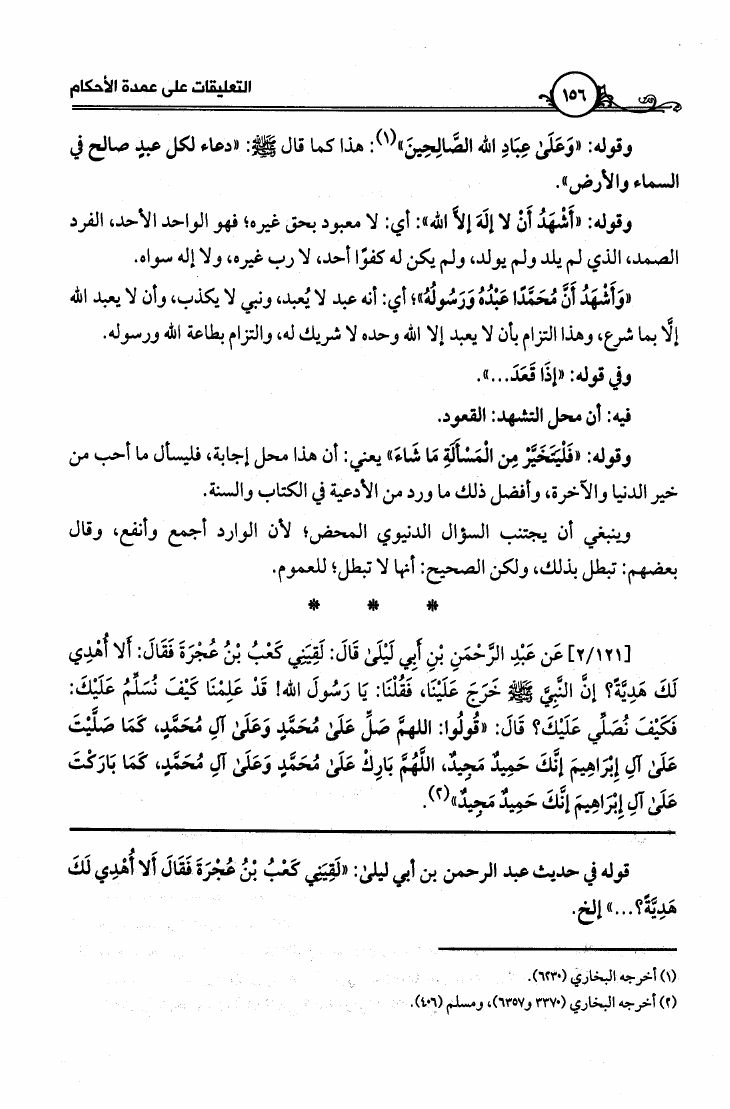 التعليقات على عمدة الأحكام
١٥٦
وقوله: «وَعَلَىٰ عِبَادِ الله الصَّالِحِينَ»(١): هذا كما قال ﷺ: «دعاء لكل عبدٍ صالح في
السماء والأرض».
وقوله: «أَشْهَدُ أَنْ لا إِلَهَ إلاَّ الله»: أي: لا معبود بحق غيره؛ فهو الواحد الأحد، الفرد
الصمد، الذي لم يلد ولم يولد، ولم يكن له كفوًا أحد، لا رب غيره، ولا إله سواه.
«وَأَشْهَدُ أَنَّ مُحَمَّدًا عَبْدُهُ وَرَسُولُهُ»؛ أي: أنه عبد لا يُعبد، ونبي لا يكذب، وأن لا يعبد الله
إلَّا بما شرع، وهذا التزام بأن لا يعبد إلا الله وحده لا شريك له، والتزام بطاعة الله ورسوله.
وفي قوله: «إِذَا قَعَدَ...».
فيه: أن محل التشهد: القعود.
وقوله: «فَلْيَتَخَيَّرْ مِن الْمَسأَلَةِ مَا شَاءَ» يعني: أن هذا محل إجابة، فليسأل ما أحب من
خير الدنيا والآخرة، وأفضل ذلك ما ورد من الأدعية في الكتاب والسنة.
وينبغي أن يجتنب السؤال الدنيوي المحض؛ لأن الوارد أجمع وأنفع، وقال
بعضهم: تبطل بذلك، ولكن الصحيح: أنها لا تبطل؛ للعموم.
* * *
[٢/١٢١] عَن عَبْدِ الرَّحْمَنِ بْنِ أَبِي لَيْلَىٰ قَالَ: لَقِيَنِي كَعْبُ بْنُ عُجْرَةَ فَقَالَ: أَلا أُهْدِي
لَكَ هَدِيَّةً؟ إِنَّ النَّبِيَّ ﷺ خَرَجَ عَلَيْنَا، فَقُلْنَا: يَا رَسُولَ الله! قَدْ عَلِمْنَا كَيْفَ نُسَلِّمُ عَلَيْكَ:
فَكَيْفَ نُصَلِّي عَلَيْكَ؟ قَالَ: «قُولُوا: اللهمَّ صَلِّ عَلَىٰ مُحَمَّدٍ وَعَلَىٰ آلِ مُحَمَّدٍ، كَمَا صَلَّيْتَ
عَلَىٰ آلِ إِبْرَاهِيمَ إِنَّكَ حَمِيدٌ مَجِيدٌ، اللَّهُمَّ بَارِكْ عَلَىٰ مُحَمَّدٍ وَعَلَىٰ آلِ مُحَمَّدٍ، كَمَا بَارَكْتَ
عَلَىٰ آلِ إِبْرَاهِيمَ إِنَّكَ حَمِيدٌ مَجِيدٌ»(٢).
قوله في حديث عبد الرحمن بن أبي ليلىٰ: «لَقِيَنِي كَعْبُ بْنُ عُجْرَةَ فَقَالَ أَلا أُهْدِي لَكَ
هَدِيَّةً؟...» إلخ.
(١) أخرجه البخاري (٦٢٣٠).
(٢) أخرجه البخاري (٣٣٧٠ و٦٣٥٧)، ومسلم (٤٠٦).